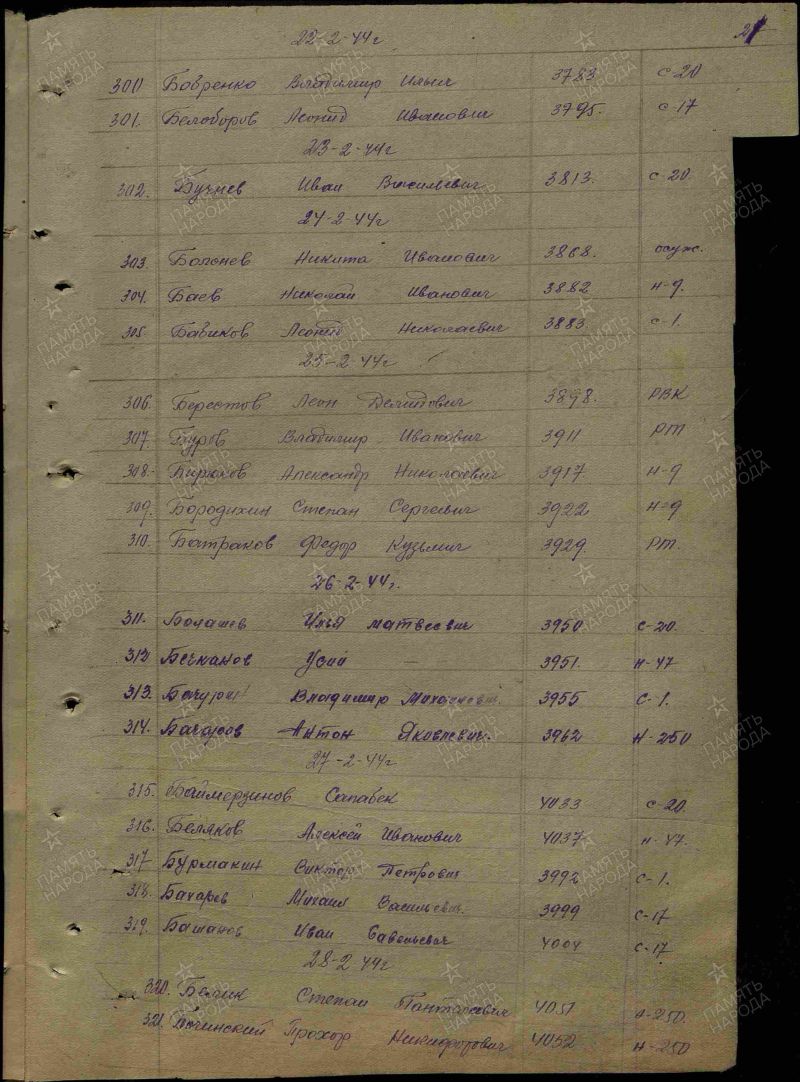 22-2-44г
300 Бобренко Владимир Ильич 3783 с-20
301. Белоборов Леонид Иванович 3795. с-17
23-2-44г
302. Бучнев Иван Васильевич 3813. с-20
24-2-44г
303. Болонев Никита Иванович 3868. осуж.
304. Баев Николай Иванович 3882 н-9
305 Бабиков Леонид Николаевич 3883. с-1.
25-2-44г
306. Берестов Леон Демидович 3898. РВК
307. Буров Владимир Иванович 3911 РТ
308. Бирюков Александр Николаевич 3917 н-9
309. Бородихин Степан Сергеевич 3922 н-9
310. Батраков Федор Кузьмич 3929 РТ.
26-2-44г.
311. Болашев Илья Матвеевич 3950 с-20.
312 Бечканов Усий 3951. н-47
313. Владимир 3955 с-1.
314. Антон Яковлевич. 3962 н-250
27-2-44г
315. Баймерзинов Сапабек 4033 с-20.
316. Беляков Алексей Иванович 4037 н-47.
317 Бурмакин Виктор Петрович 3992 с-1.
318. Бахарев Михаил Васильевич. 3999 с-17
319. Башанов Иван Савельевич 4004 с-17
28-2-44г
320. Белик Степан 4051 н-250.
321. Бочинский Прохор Никифорович 4052 н-250
ПАМЯТЬ НАРОДА